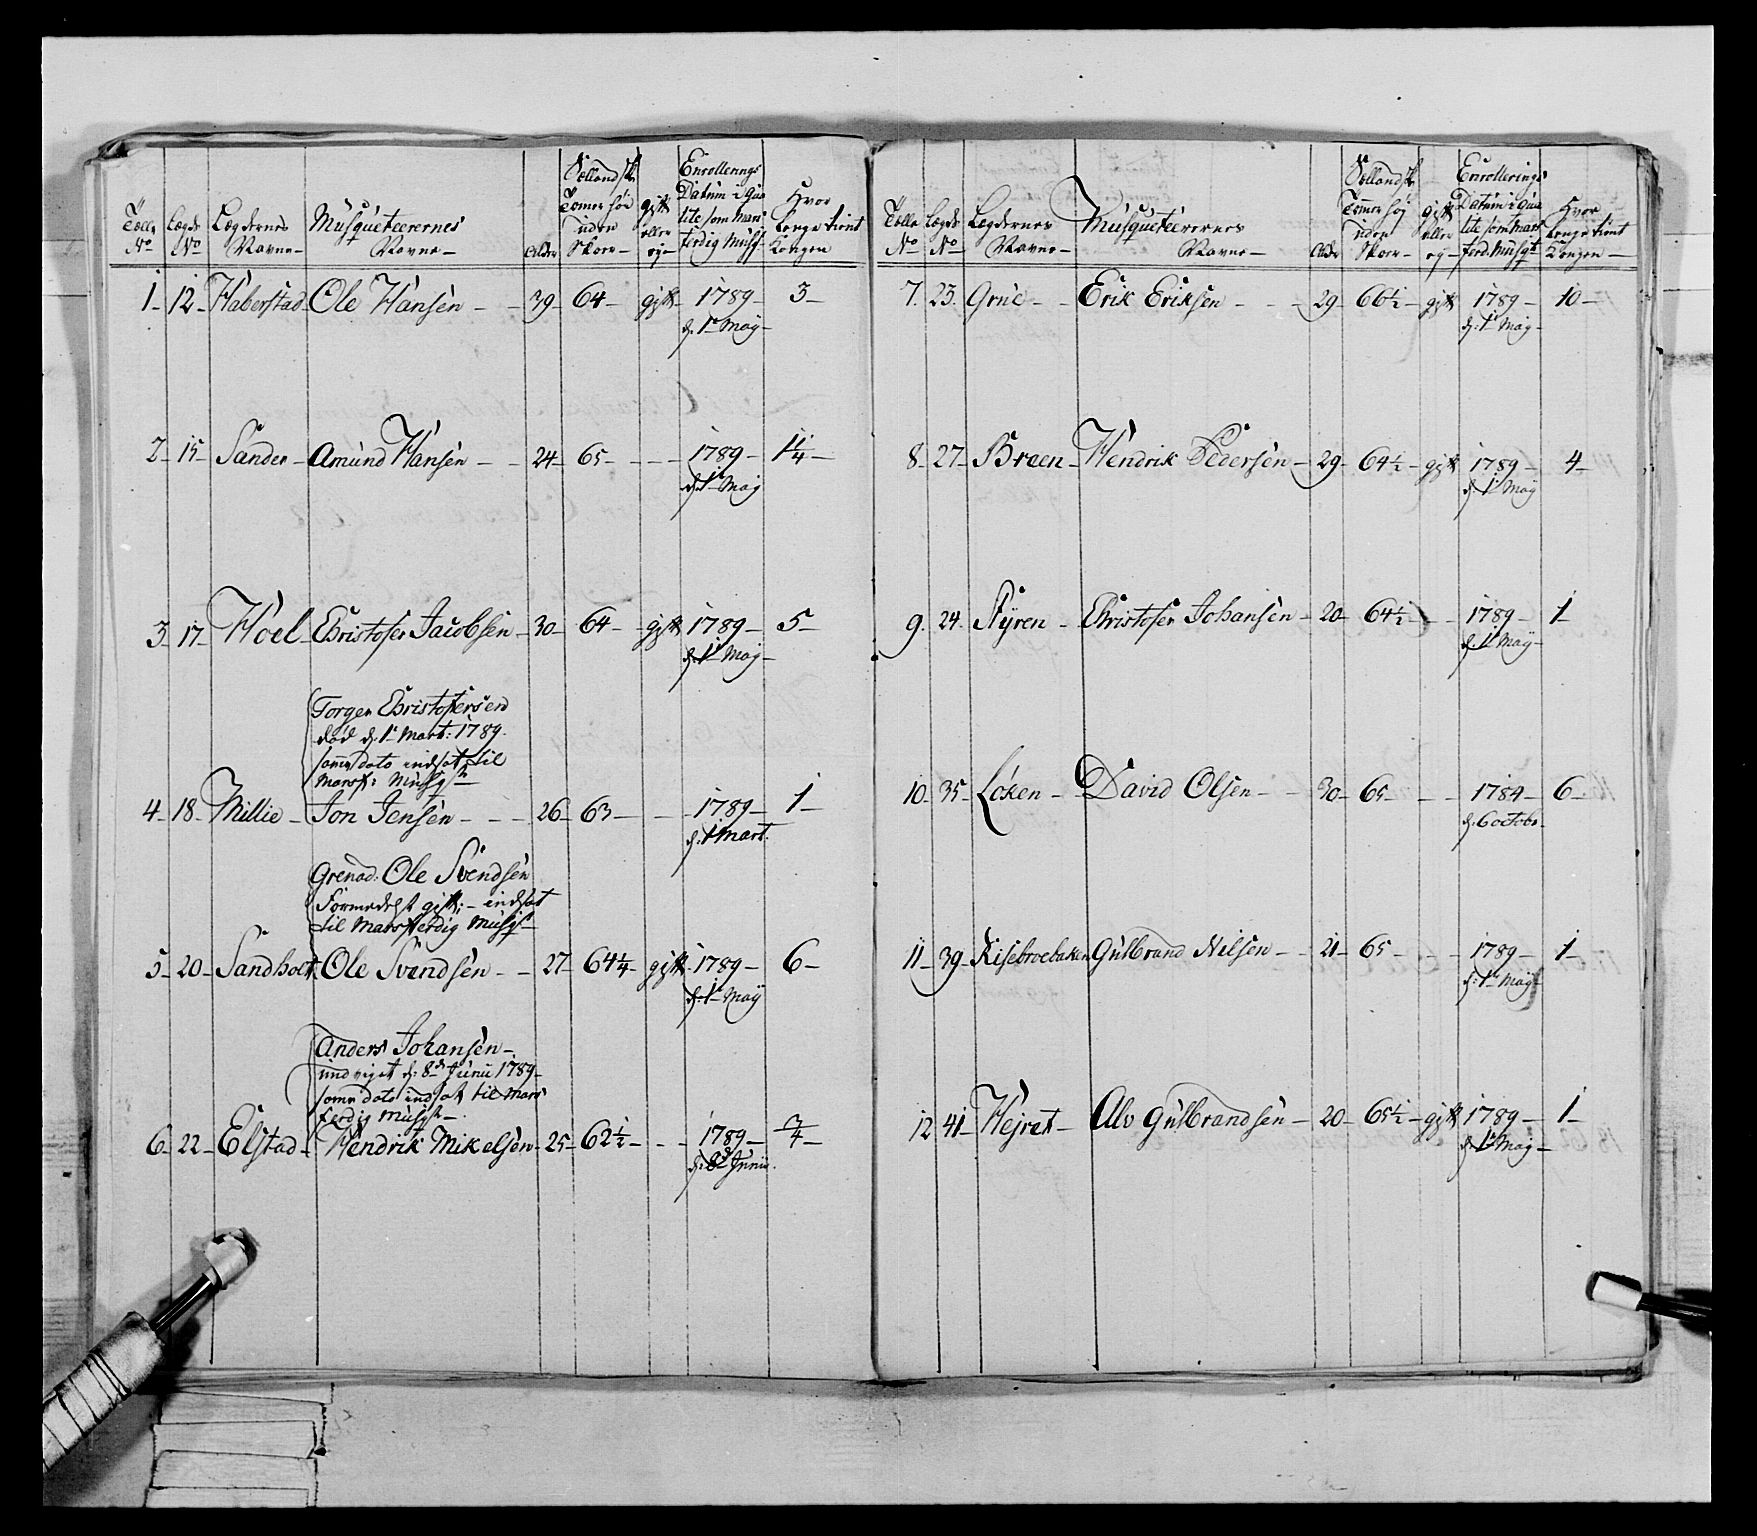 Tolle No
Lægds No
Lægdernes Navne
Musqueteerernes Navne
Alder
Siellandsk Tommer høi uden Skoer
gift eller ej
Enrollerings Datum i Qualite som Marsferdig Musq.
Hvor lenge tient Kongen
1 12 Haberstad Ole Hansen 39 64 gift 1789 3
d: 1te Maÿ
2 15 Sander Amund Hansen 24 65 1789 1 1/4
d: 1te Maÿ
3 17 Hoel Christofer Jacobsen 30 64 gift 1789 5
d: 1te Maÿ
Torger Christofersen
død d: 1te Mart: 1789
samme dato indsat til
Marsf: Musqt
4 18 Millie Jon Jensen 26 63 1789 1
d: 1te Mart.
Grenad: Ole Svendsen
Formedelst gift: indsat
til Marsferdig Musqt
5 20 Sandholt Ole Svendsen 27 64 1/4 gift 1789 6
d: 1te Maÿ
Anders Johansen
undviget d: 8de Junii 1789
samme dato indsat til Mars
ferdig Musqt
6 22 Elstad Hendrik Mikelsen 25 62 1/2 1789 3/4
d: 8de Junii
Tolle No
Lægds No
Lægdernes Navne
Musqueteerernes Navne
Alder
Siellandsk Tommer høj uden Skoer
gift eller ej
Enrollerings Datum i Qualite som Marsferd. Musqt
Hvor lenge tient Kongen
7. 23. Grue Erik Eriksen 29 66 1/2 gift 1789 10
d: 1te Maÿ
8 27 Breen Hendrik Pedersen 29 64 1/2 gift 1789 4
d: 1te Maÿ
9. 24 Styren Christofer Johansen 20 64 1/2 1789 1
d: 1te Maÿ
10 35 Løken David Olsen 30 65 1784 6
d: 6 octobr
11 39 Risebroebaken Gulbrand Nilsen 21 65 1789 1
d: 1te Maÿ
12 41 Hejret Alv Gulbrandsen 20 65 1/2 gift 1789 1
d: 1te Maÿ